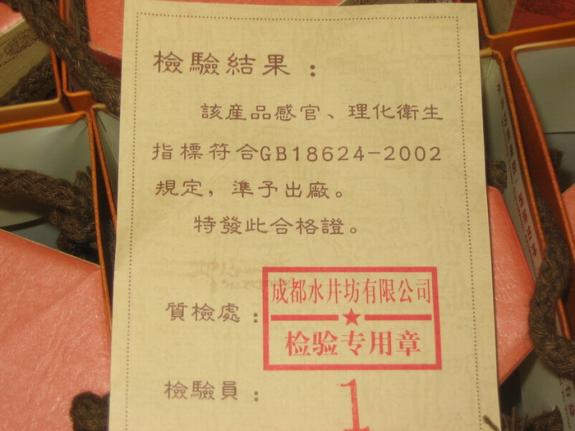 檢驗結果：
該産品感官、理化衛生
指標符合GB18624-2002
規定，準予出廠。
特發此合格證。
質檢處：
成都水井坊有限公司
检验专用章
檢驗員：
1